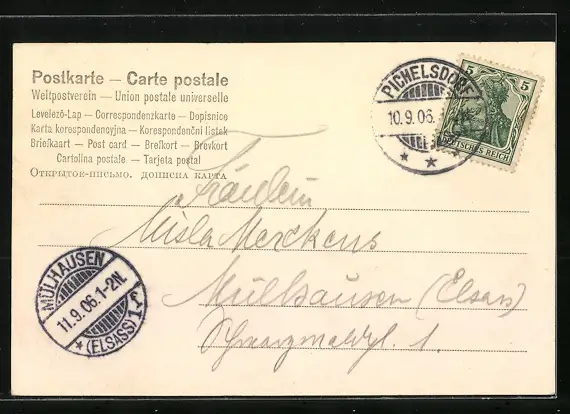 Postkarte — Carte postale
Weltpostverein — Union postale universelle
Levelező-Lap — Correspondenzkarte — Dopisnice
Karta korespondencyjna — Korespondenční listek
Briefkaart — Post card — Brefkort — Brevkort
Cartolina postale — Tarjeta postal
Открытое-письмо. дописна карта
PICHELSDORF
10.9.06.
5 5
DEUTSCHES REICH
Fräulein
Misla Merckens
Mülhausen (Elsass)
Schwarzwaldstr. 1.
MÜLHAUSEN
11.9.06.1-2N.
* (ELSASS) 1 f